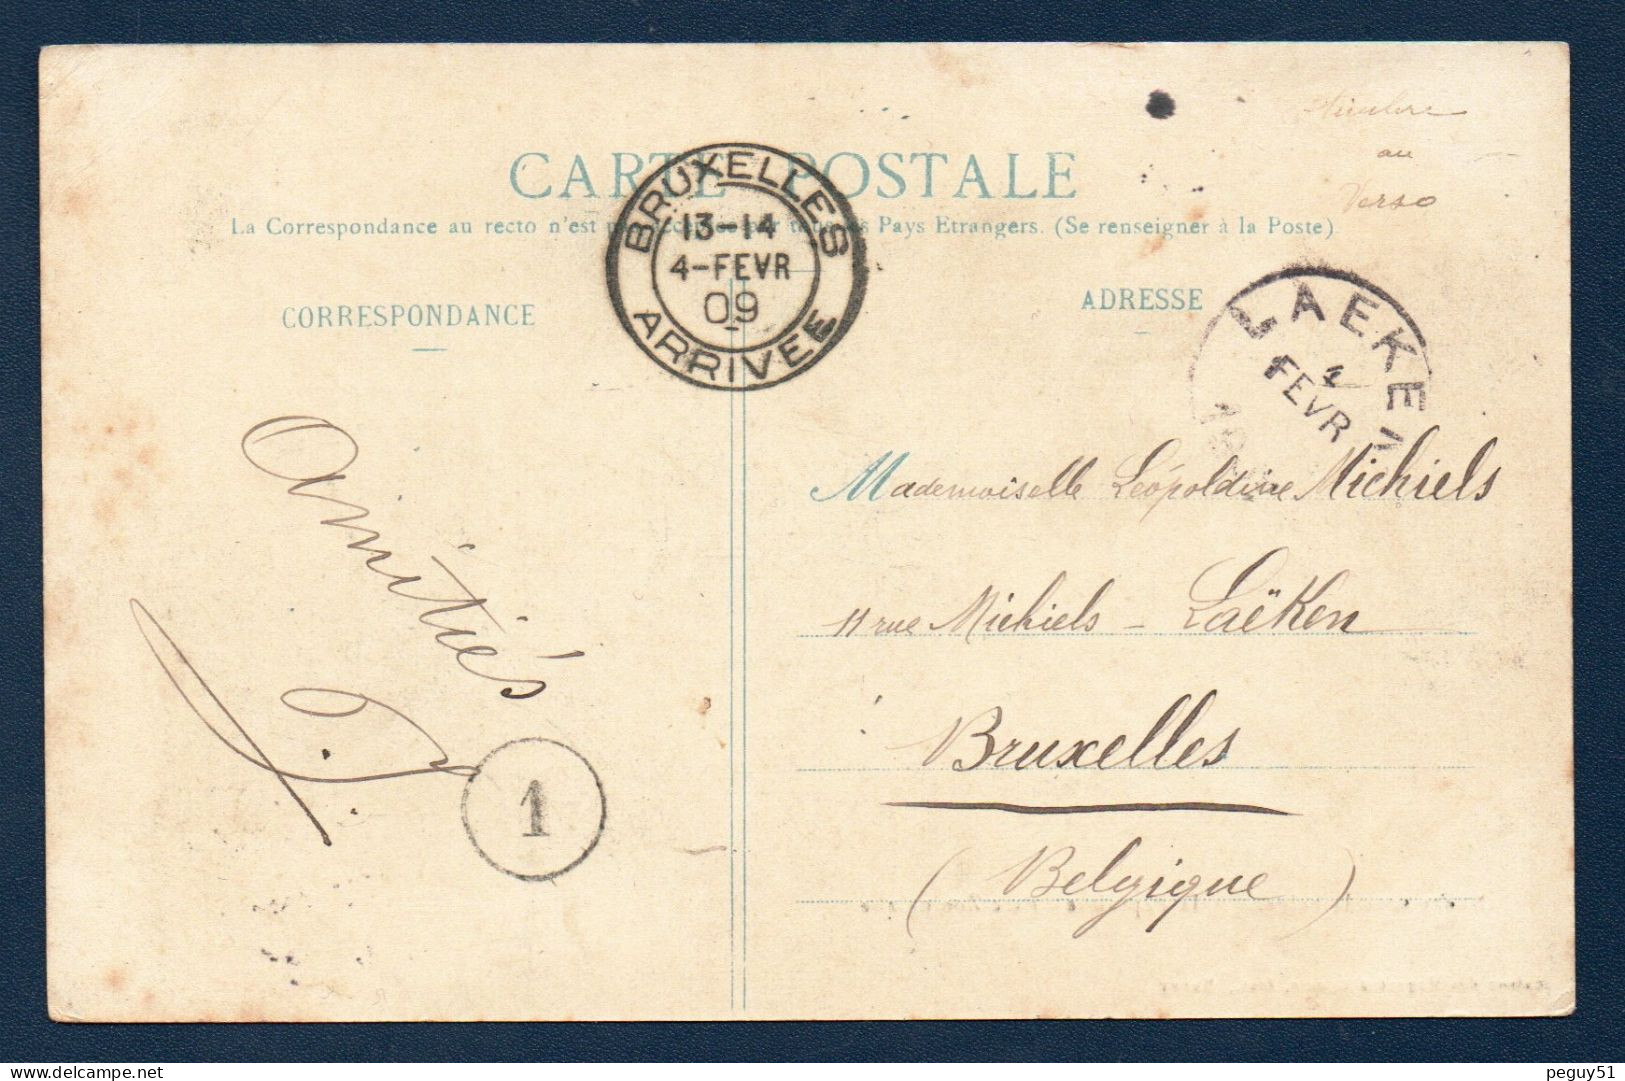 Timbre
au
Verso
CARTE POSTALE
La Correspondance au recto n'est pas acceptée par tous les Pays Etrangers. (Se renseigner à la Poste)
BRUXELLES
13-14
4-FEVR
09
ARRIVEE
CORRESPONDANCE
ADRESSE
LAEKEN
4
FEVR
Amitiés
1
Mademoiselle Léopoldine Michiels
11 rue Michiels - Laëken
Bruxelles
(Belgique)
peguy51